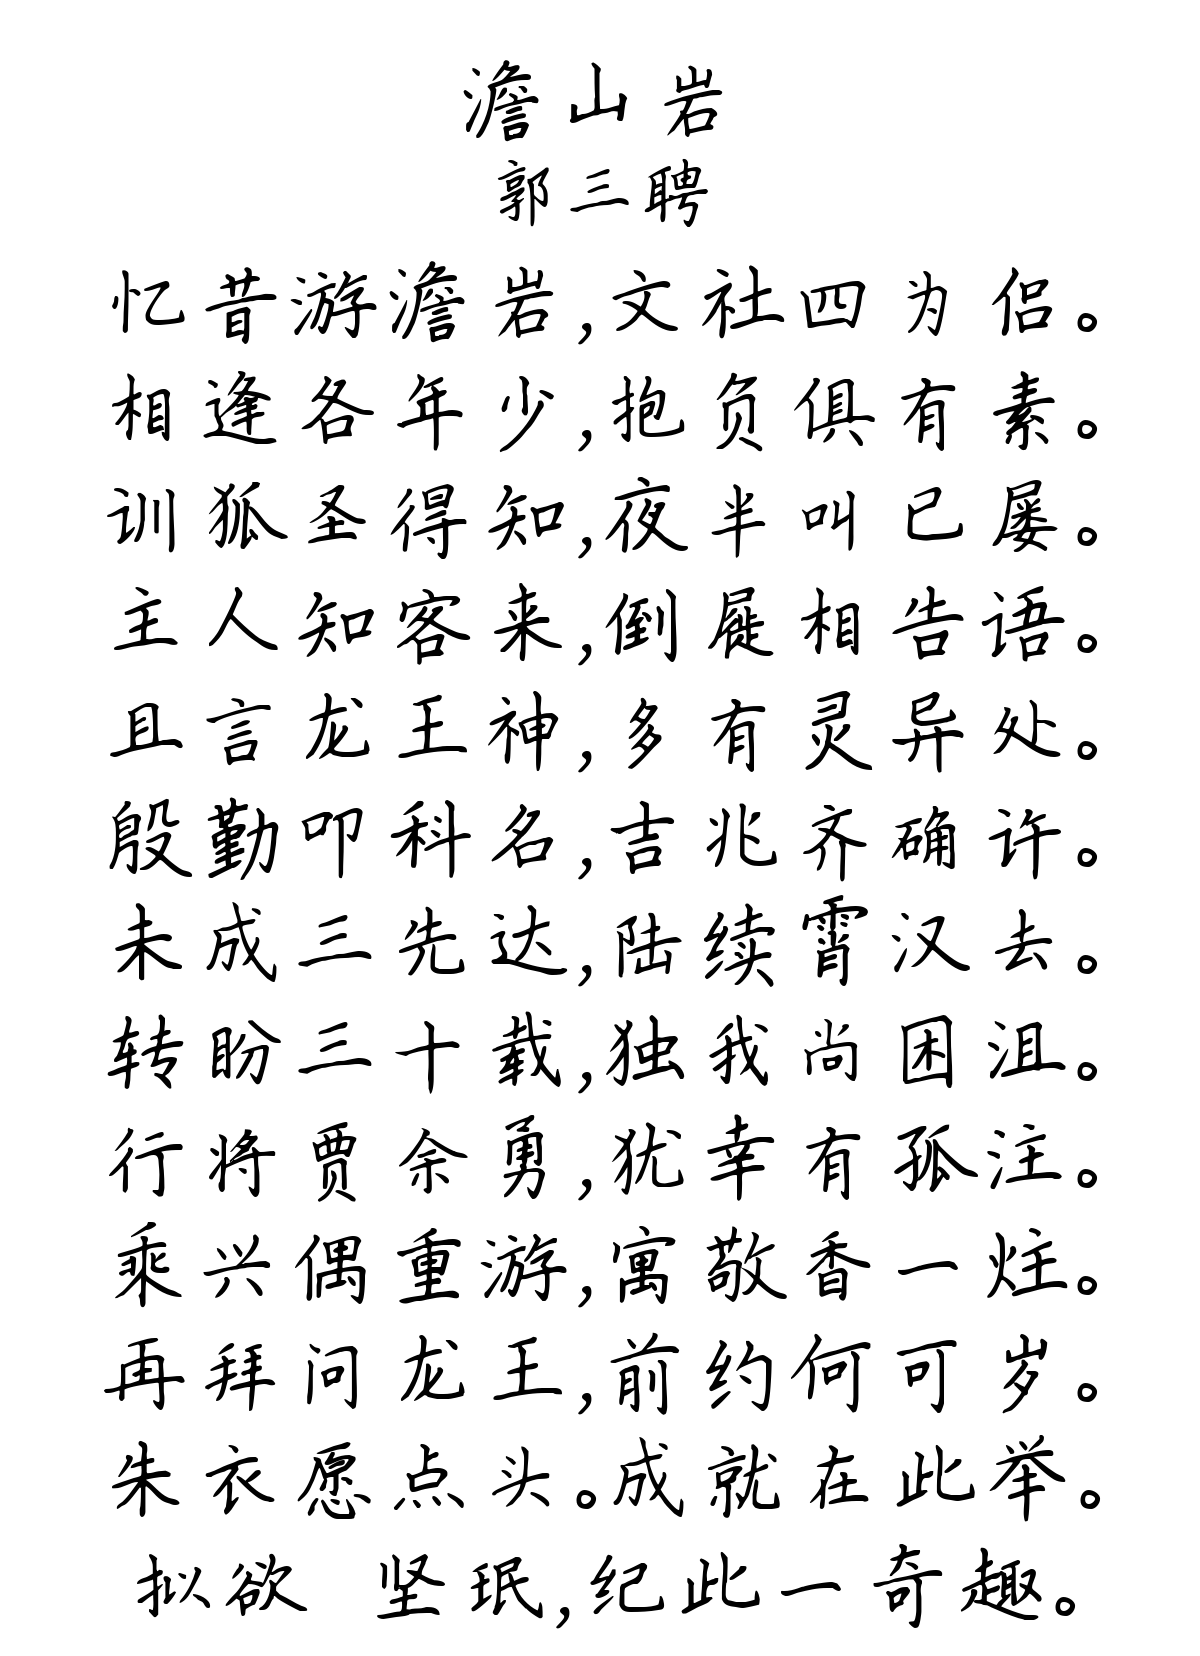 澹山岩
郭三聘
忆昔游澹岩,文社四为侣。
相逢各年少,抱负俱有素。
训狐圣得知,夜半叫已屡。
主人知客来,倒屣相告语。
且言龙王神,多有灵异处。
殷勤叩科名,吉兆齐确许。
未成三先达,陆续霄汉去。
转盼三十载,独我尚困沮。
行将贾余勇,犹幸有孤注。
乘兴偶重游,寓敬香一炷。
再拜问龙王,前约何可岁。
朱衣愿点头。成就在此举。
拟欲 坚珉,纪此一奇趣。